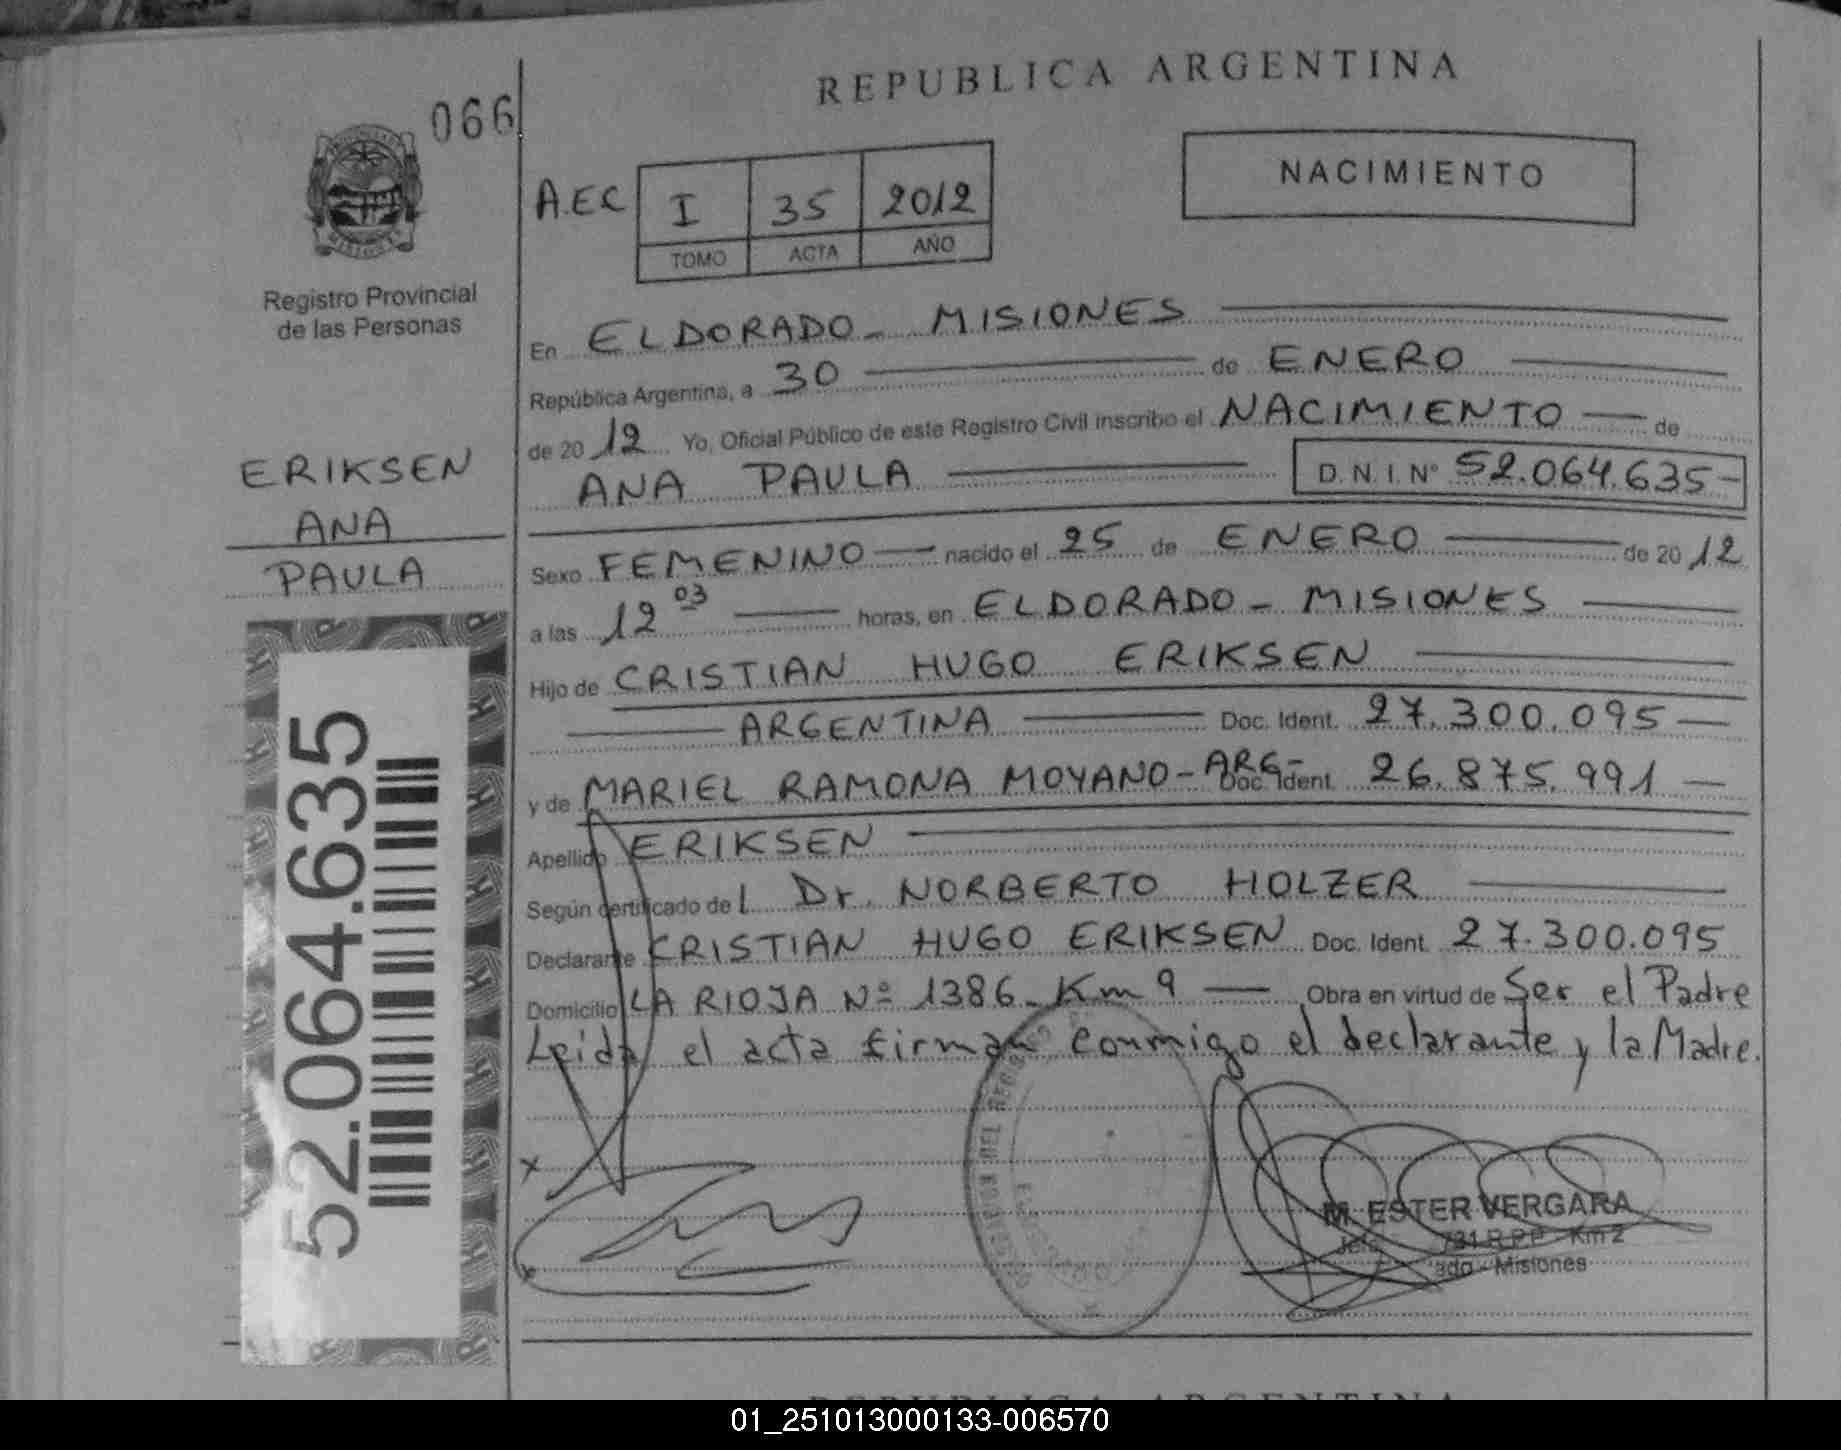 REPUBLICA ARGENTINA
066
NACIMIENTO
A.E.C I 35 2012
TOMO ACTA AÑO
Registro Provincial
de las Personas
En ELDORADO - MISIONES
República Argentina, a 30 de ENERO
de 2012 Yo, Oficial Público de este Registro Civil inscribo el NACIMIENTO de
ANA PAULA D.N.I. Nº 52.064.635-
ERIKSEN
ANA
PAULA
Sexo FEMENINO nacido el 25 de ENERO de 2012
a las 12 03 horas, en ELDORADO - MISIONES
Hijo de CRISTIAN HUGO ERIKSEN
ARGENTINA Doc. Ident. 27.300.095
y de MARIEL RAMONA MOYANO - ARG- Doc. Ident. 26.875.991
Apellido ERIKSEN
Según certificado del Dr. NORBERTO HOLZER
Declarante CRISTIAN HUGO ERIKSEN Doc. Ident. 27.300.095
Domicilio LA RIOJA Nº 1386 - Km 9 Obra en virtud de Ser el Padre
Leida el acta firman conmigo el declarante y la Madre.
52.064.635
M. ESTER VERGARA
731 R.P.P. Km 2
Misiones
REPUBLICA ARGENTINA
01_251013000133-006570